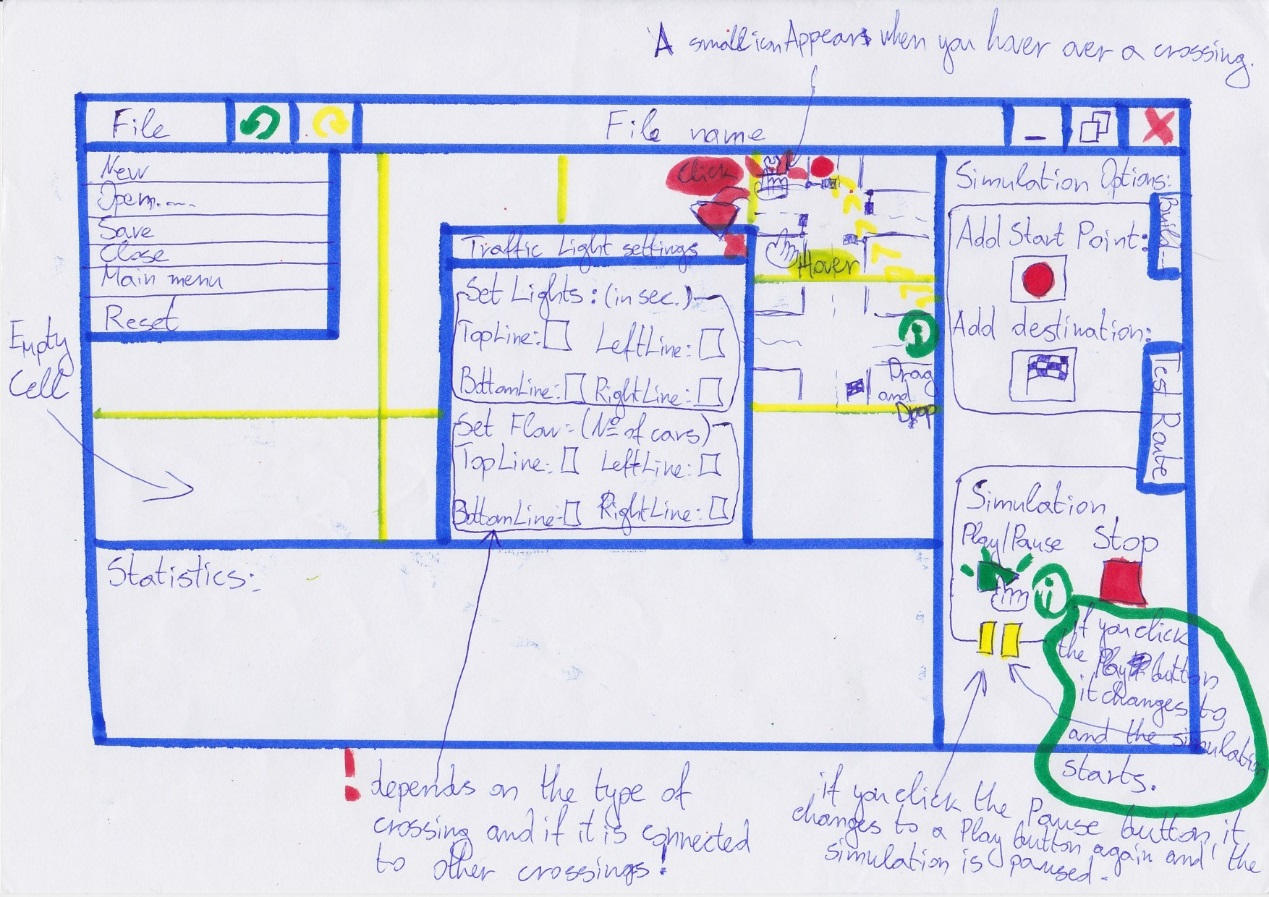 A small icon Appears when you hover over a crossing.
File
File name
New
Open....
Save
Close
Main menu
Reset
Click
Hover
Traffic Light settings
Set Lights: (in sec.)
TopLine:
LeftLine:
BottomLine:
RightLine:
Set Flow: (№ of cars)
TopLine:
LeftLine:
BottomLine:
RightLine:
i
Drag
and
Drop
Simulation Options:
Build
Add Start Point:
Add destination:
Test Route
Simulation
Play/Pause
Stop
i
if you click
the Play button
it changes to
and the simulation
starts.
Empty
Cell
Statistics:
! depends on the type of
crossing and if it is connected
to other crossings!
if you click the Pause button it
changes to a Play button again and the
simulation is paused.